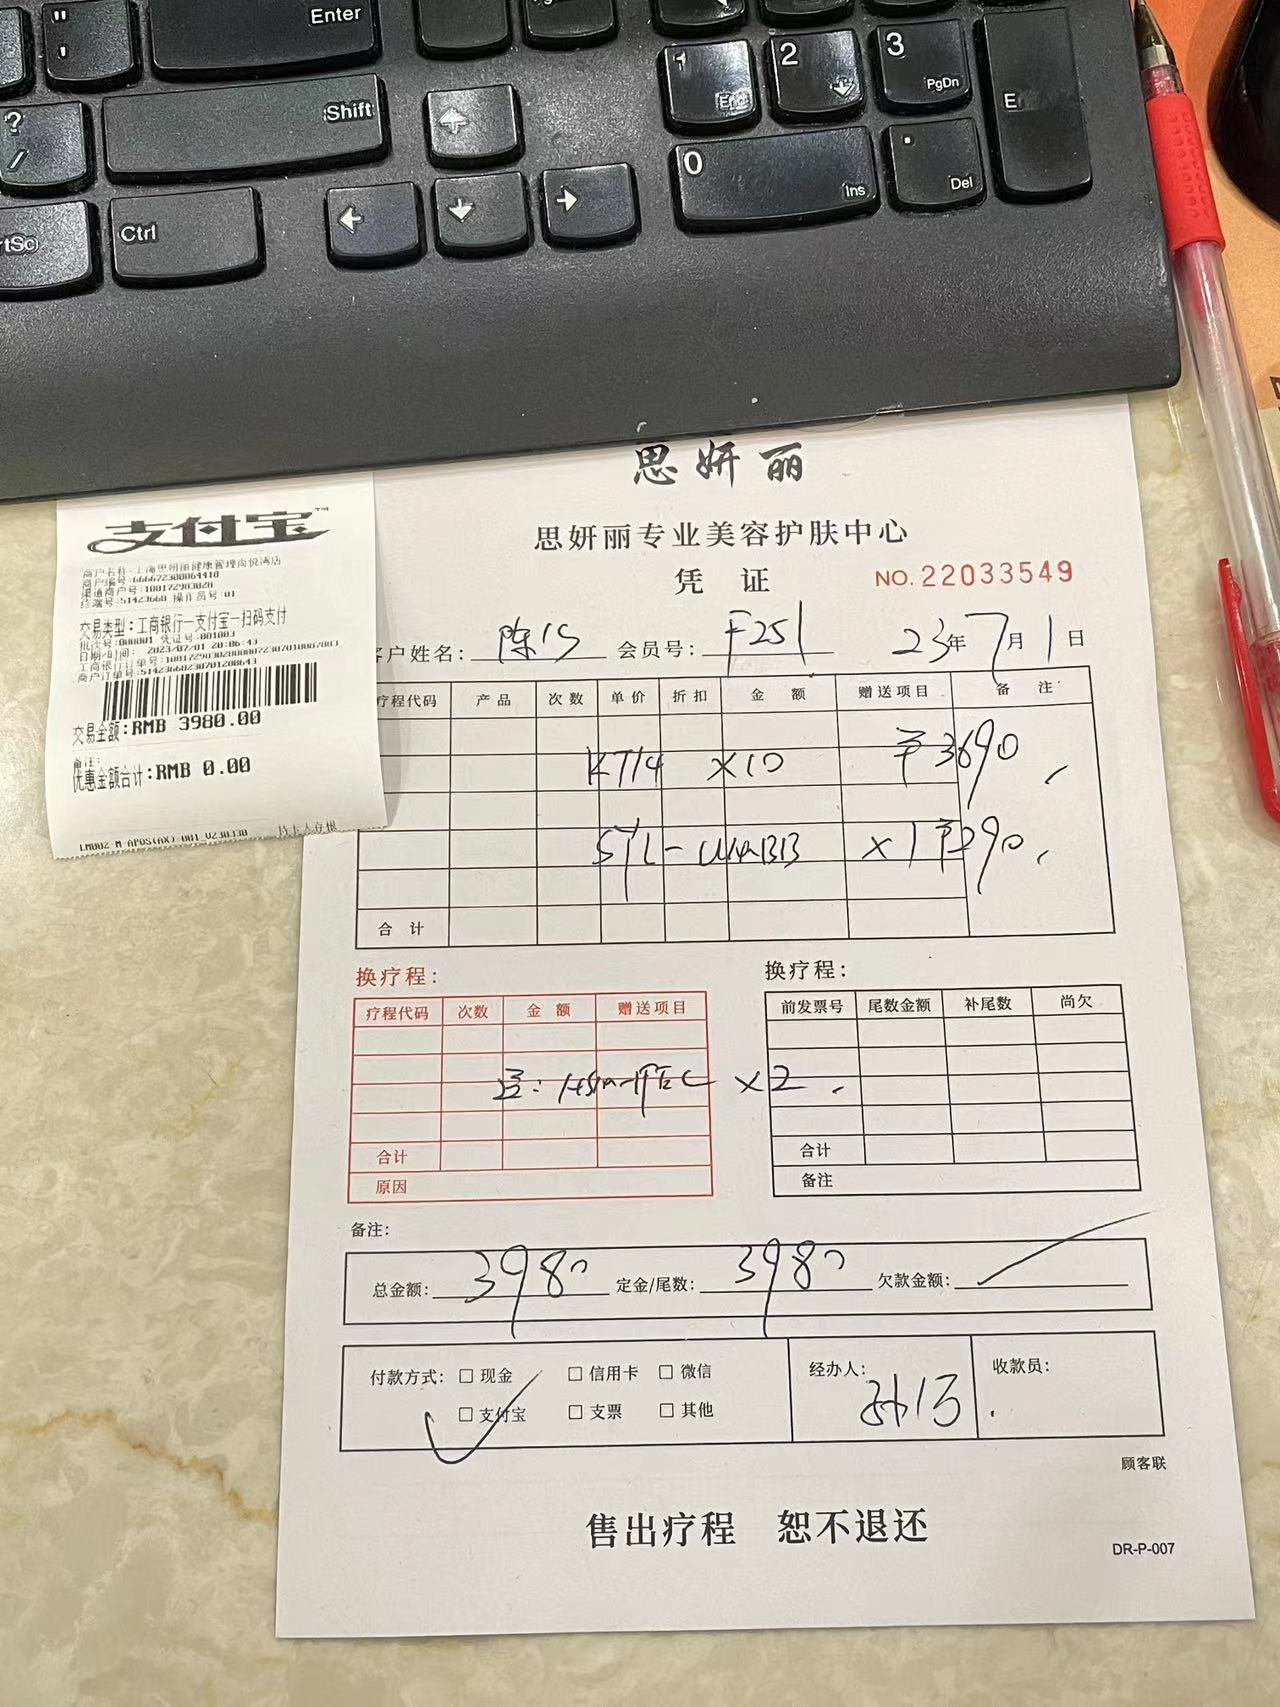 "
'
Enter
PgUp
?
/
Shift
1
End
2
3
PgDn
E
rtSc
Ctrl
0
Ins
.
Del
思妍丽
思妍丽专业美容护肤中心
凭 证
NO. 22033549
客户姓名: 会员号: F251 23年7月1日
疗程代码 产品 次数 单价 折扣 金 额 赠送项目 备 注
KT14 ×10 ¥3690
×1 ¥290
合 计
换疗程:
疗程代码 次数 金 额 赠送项目
×2
合计
原因
换疗程:
前发票号 尾数金额 补尾数 尚欠
合计
备注
备注:
总金额: 3980 定金/尾数: 3980 欠款金额:
付款方式: □ 现金 □ 信用卡 □ 微信
□ 支付宝 □ 支票 □ 其他
经办人:
收款员:
顾客联
售出疗程 恕不退还
DR-P-007
支付宝
商户名称:上海思妍丽健康管理尚悦湾店
商户编号:666672300064410
渠道商户号:100172983028
终端号:51423660 操作员号:01
交易类型:工商银行—支付宝—扫码支付
批次号:000001 凭证号:001003
日期/时间: 2023/07/01 20:06:43
商户订单号:51423660230701200643
交易金额:RMB 3980.00
备注:
优惠金额合计:RMB 0.00
持卡人存根